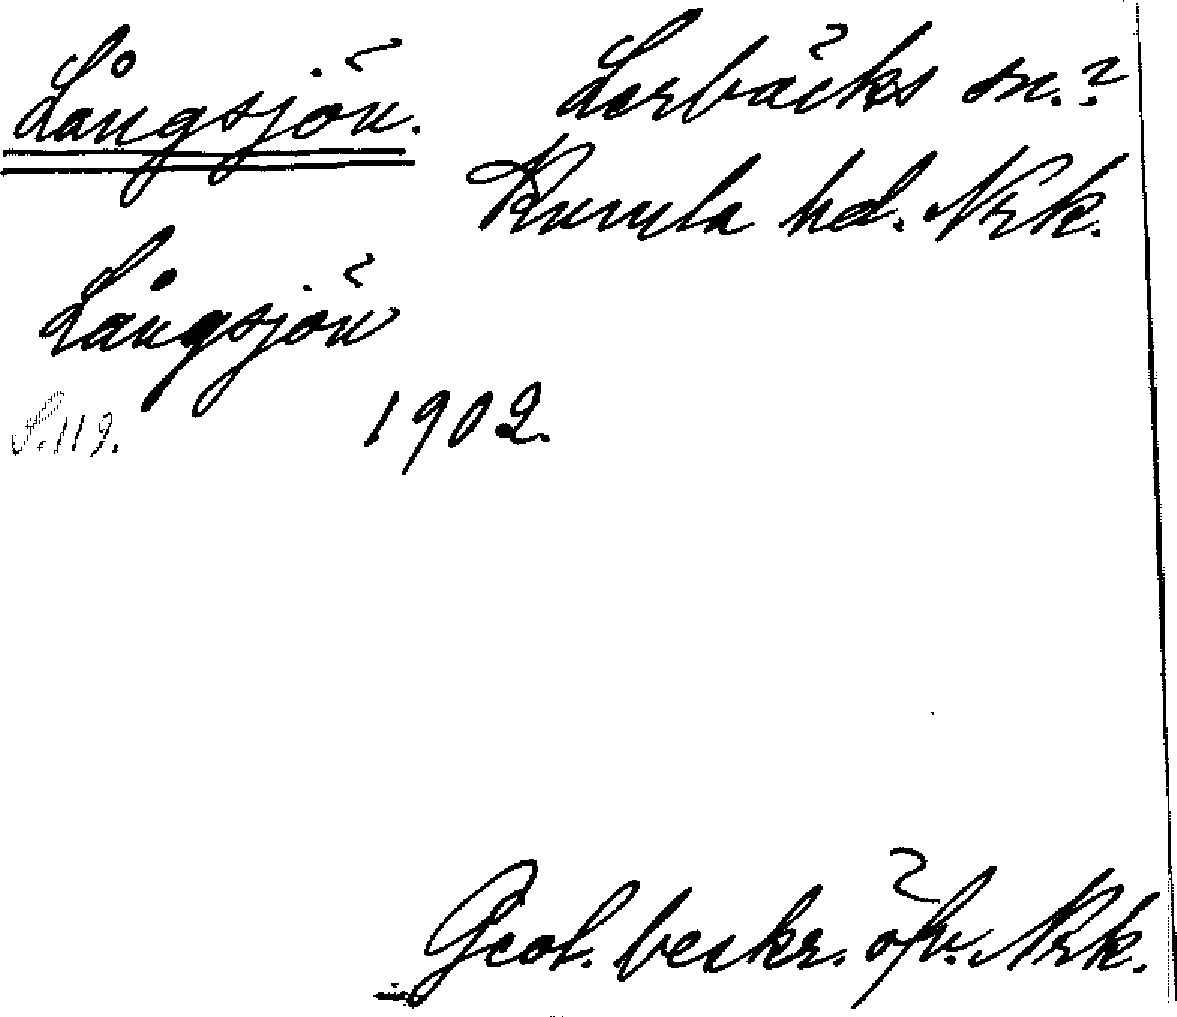 Långsjön. Lerbäcks sn.?
Kumla hd. Nrk.
Långsjön
S. 119. 1902.
Geol. beskr. öfv. Nrk.